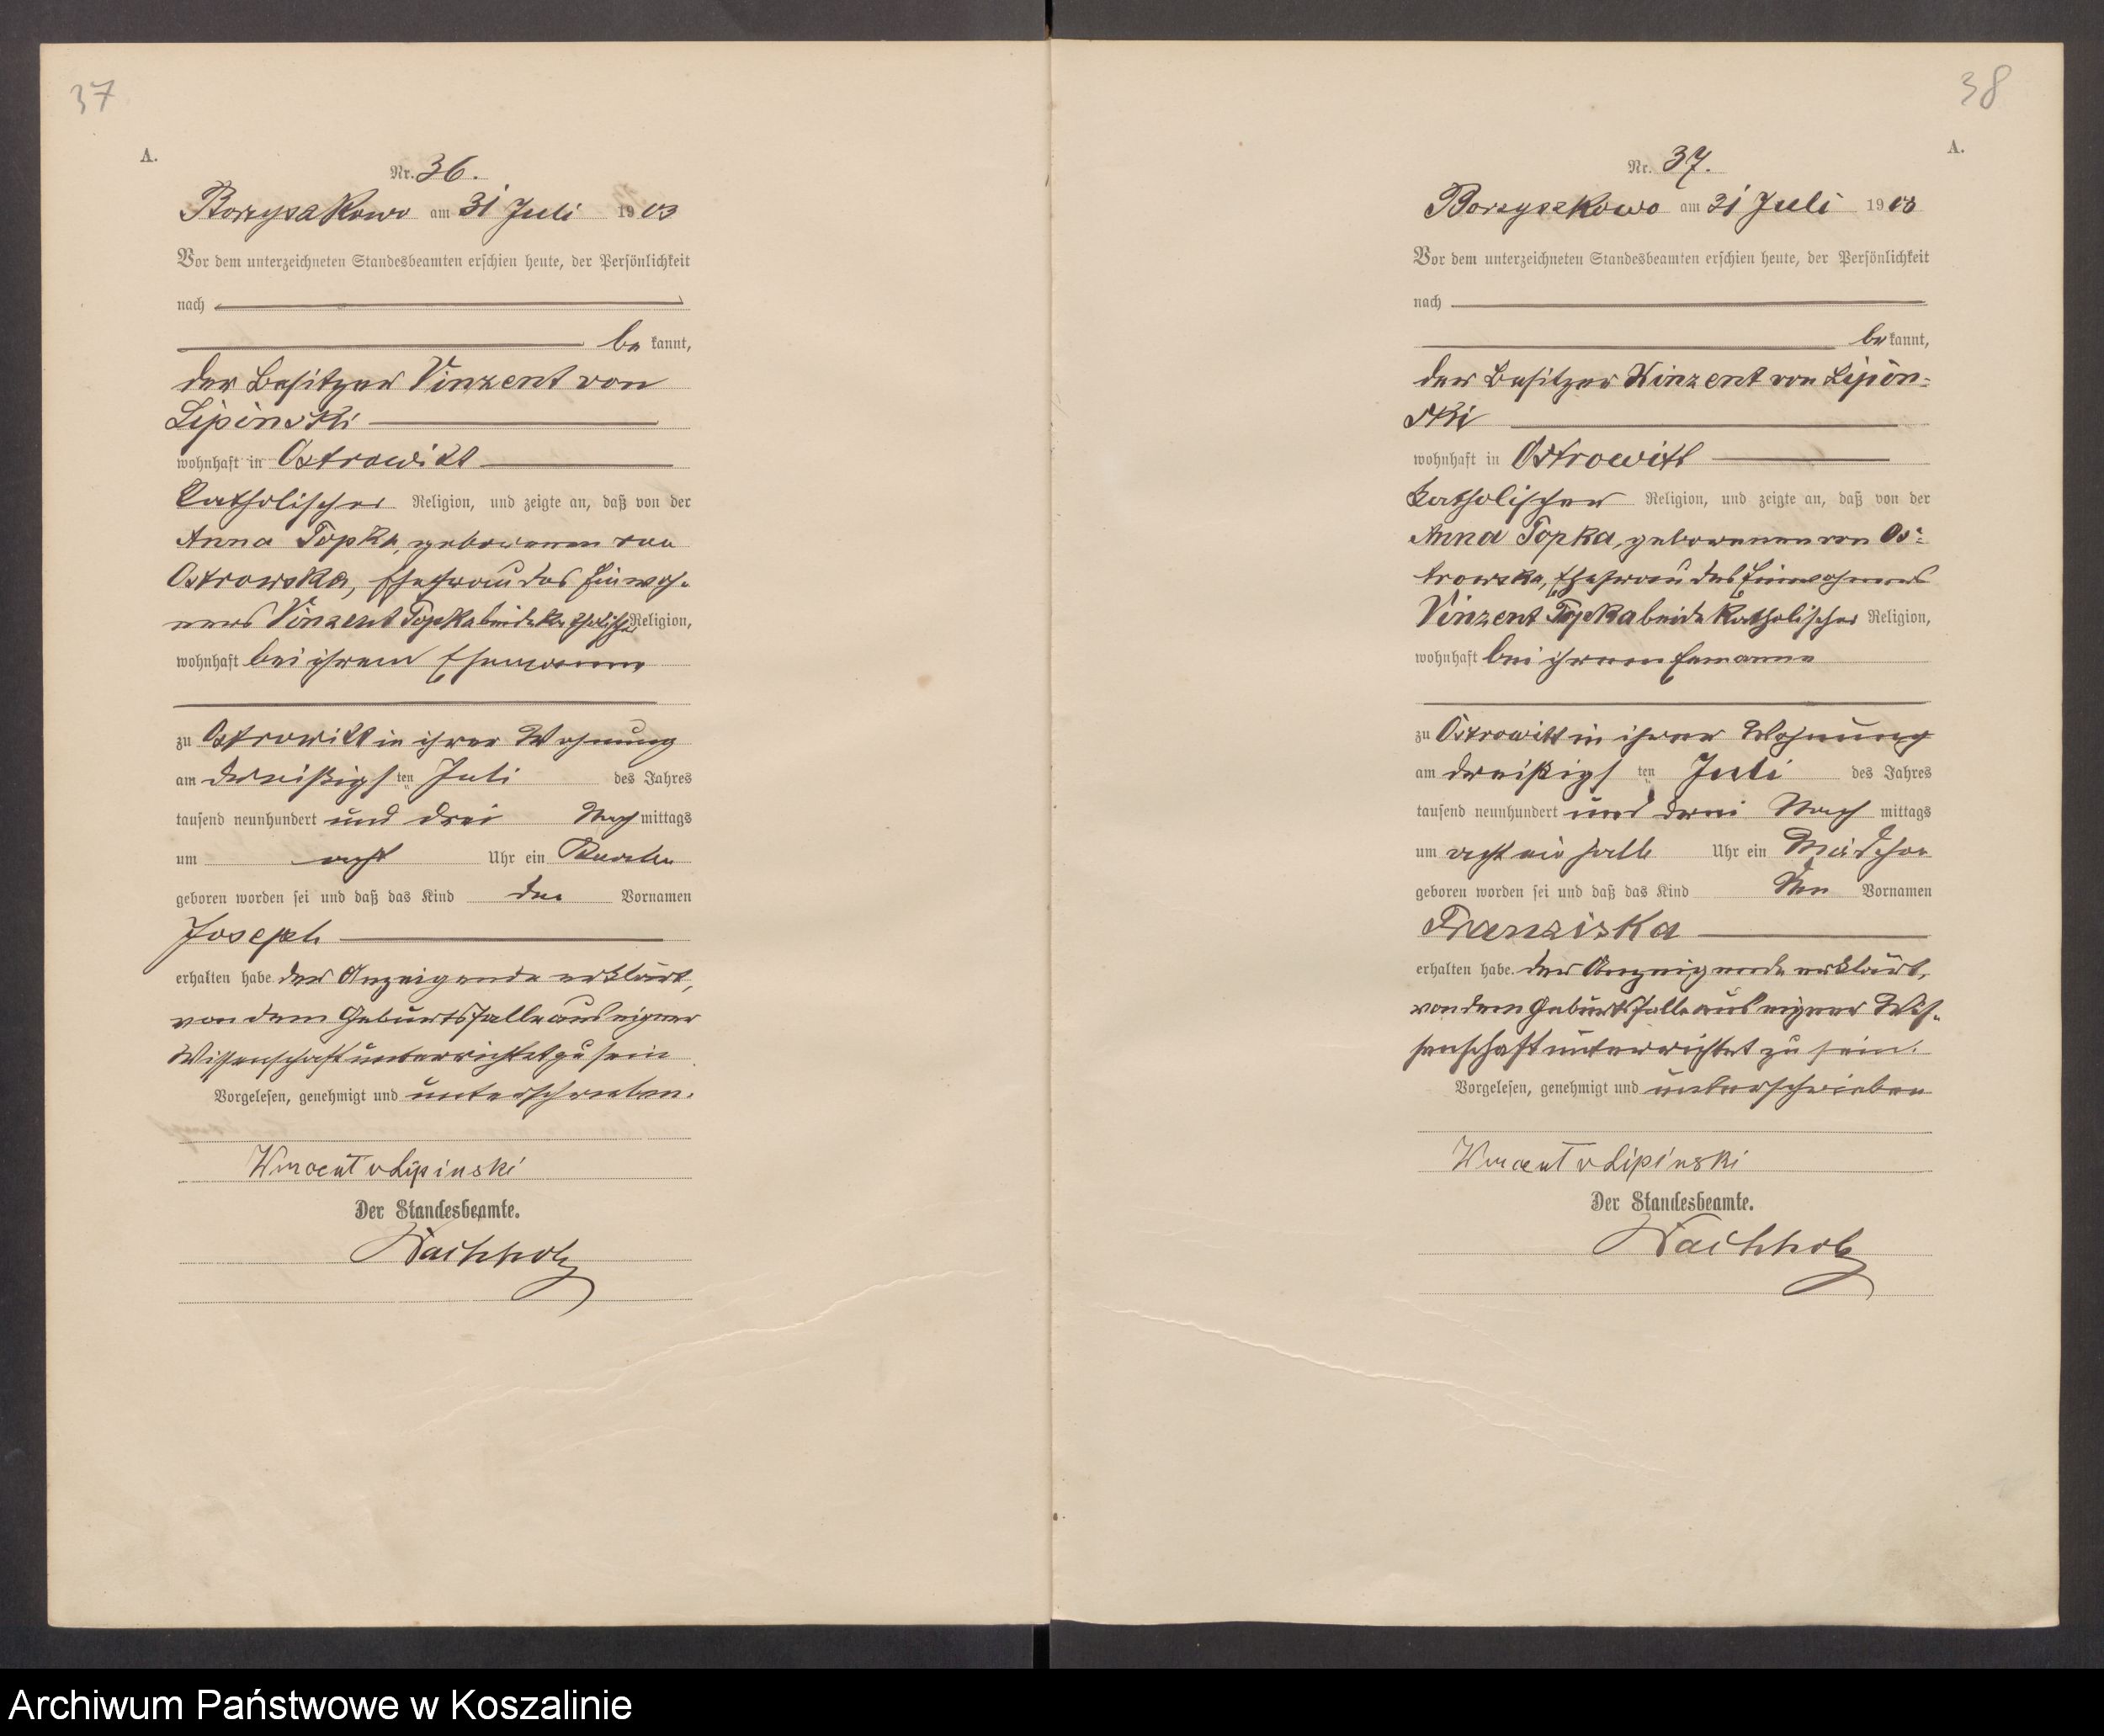 37
A.
Nr. 36.
Borzyszkowo am 31 Juli 1903
Vor dem unterzeichneten Standesbeamten erschien heute, der Persönlichkeit
nach
be kannt,
der Besitzer Vinzent von
Lipinski
wohnhaft in Ostrowitt
Katholischer Religion, und zeigte an, daß von der
Anna Topka, geborenen von
Ostrowska, Ehefrau des Einwoh-
ners Vinzent Topka beide katholischer Religion,
wohnhaft bei ihrem Ehemanne
zu Ostrowitt in ihrer Wohnung
am dreißigsten Juli des Jahres
tausend neunhundert und drei Nachmittags
um acht Uhr ein Knabe
geboren worden sei und daß das Kind den Vornamen
Joseph
erhalten habe. der Anzeigende erklärt,
von dem Geburtsfalle aus eigner
Wissenschaft unterrichtet zu sein
Vorgelesen, genehmigt und unterschrieben.
Vincent v Lipinski
Der Standesbeamte.
Wachholz
38
A.
Nr. 37.
Borzyszkowo am 31 Juli 1903
Vor dem unterzeichneten Standesbeamten erschien heute, der Persönlichkeit
nach
be kannt,
der Besitzer Vinzent von Lipin-
ski
wohnhaft in Ostrowitt
Katholischer Religion, und zeigte an, daß von der
Anna Topka, geborenen von Os-
trowska, Ehefrau des Einwohners
Vinzent Topka beide Katholischer Religion,
wohnhaft bei ihrem Emanne
zu Ostrowitt in ihrer Wohnung
am dreißigsten Juli des Jahres
tausend neunhundert und drei Nach mittags
um acht ein halb Uhr ein Mädchen
geboren worden sei und daß das Kind den Vornamen
Franziska
erhalten habe. der Anzeigende erklärt,
von dem Geburtsfalle aus eigner Wis-
senschaft unterrichtet zu sein.
Vorgelesen, genehmigt und unterschrieben
Vincent v Lipinski
Der Standesbeamte.
Wachholz
Archiwum Państwowe w Koszalinie